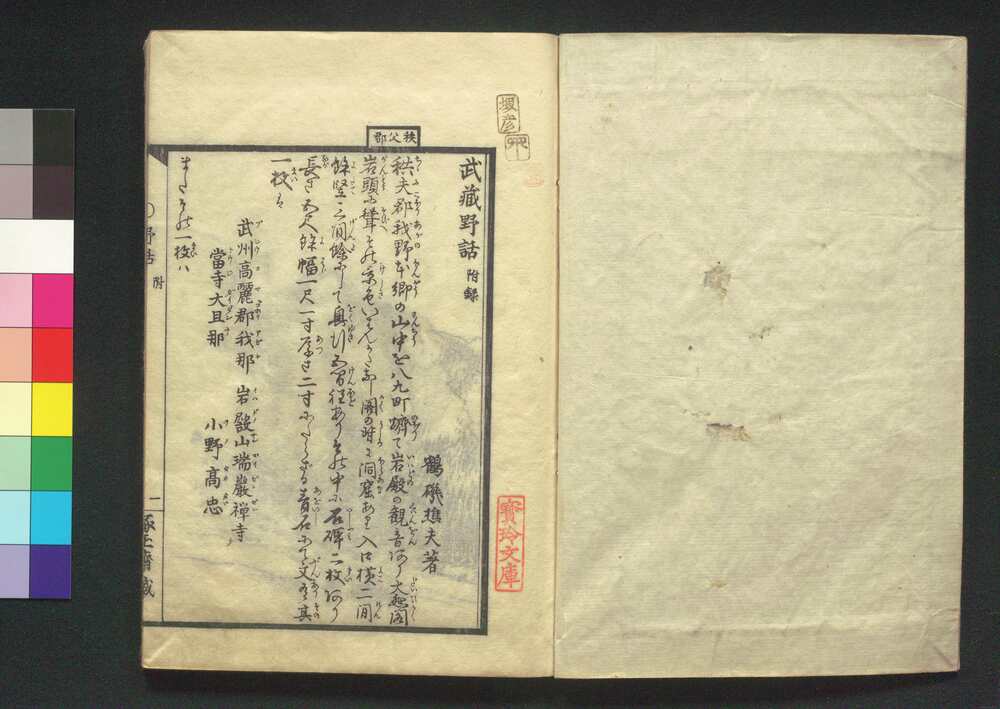 秩父郡
武藏野話 附録
鶴磯樵夫著
秩夫郡我野本郷の山中を八九町躋て岩殿の観音あり大悲閣
岩頭に聳その景色いはんかたなし閣の時に洞窟あり入口横二間
餘竪三間餘にして奥行五間程ありその中に石碑二枚あり
長さ五尺餘幅一尺一寸厚さ二寸にたらざる青石にて文有其
一枚は
武州高麗郡我那 岩殿山瑞巖禅寺
當寺大旦那 小野高忠
またその一枚ハ
野話 附
一
寶玲文庫